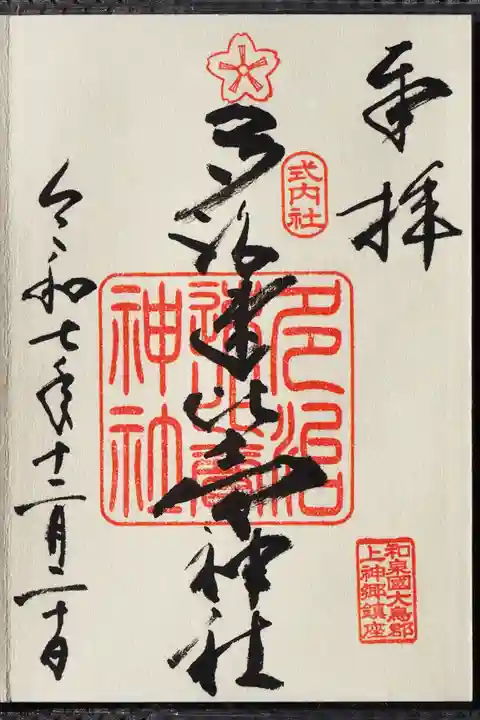 奉拝
式内社
多治速比賣神社
多治
速比賣
神社
和泉國大鳥郡
上神郷鎮座
令和七年十二月二十日